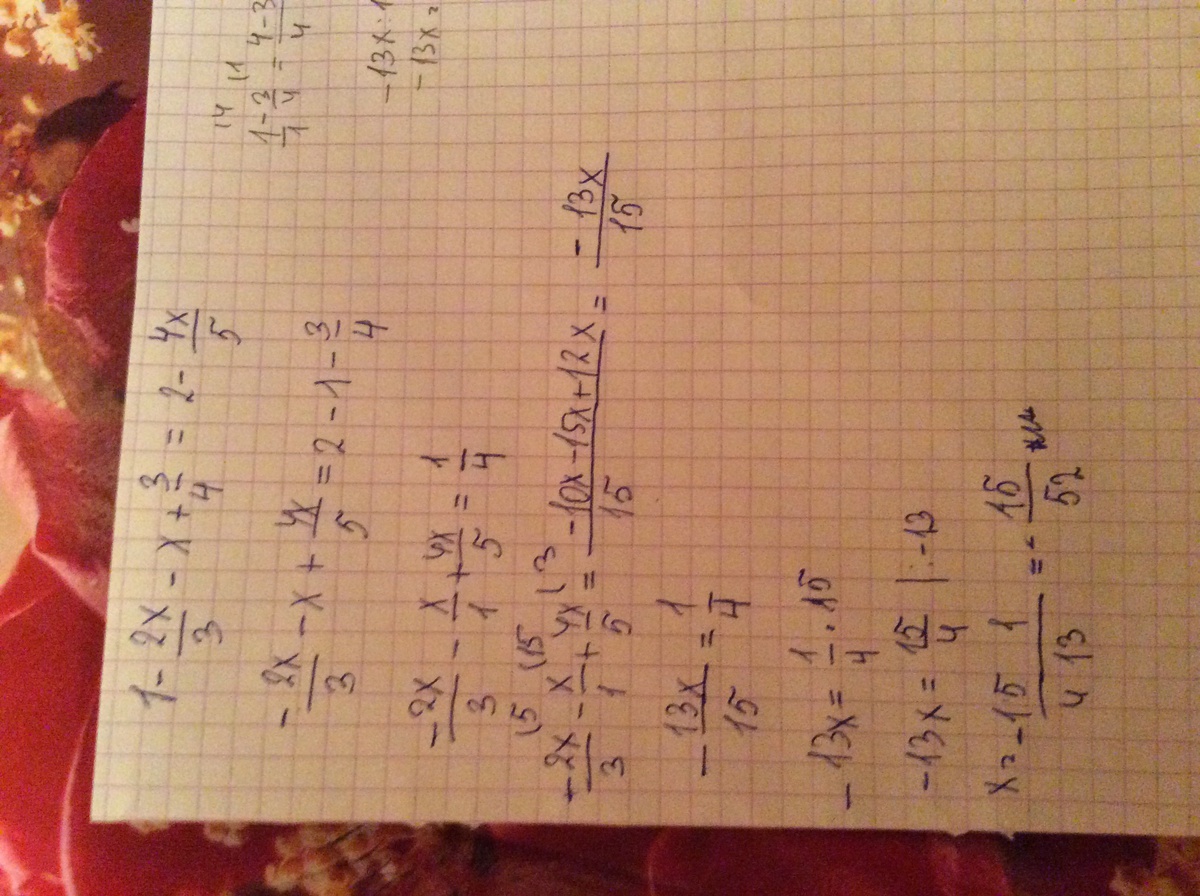 1 - 2x/3 - x + 3/4 = 2 - 4x/5
- 2x/3 - x + 4x/5 = 2 - 1 - 3/4
- 2x/3 - x/1 + 4x/5 = 1/4
(5 (15 (3
- 2x/3 - x/1 + 4x/5 = -10x - 15x + 12x/15 = - 13x/15
- 13x/15 = 1/4
- 13x = 1/4 · 15
- 13x = 15/4 | : -13
x = - 15 1/4 13 = - 15/52
(4 (1
1/1 - 3/4 = 4-3/4
-13x : 1
-13x =